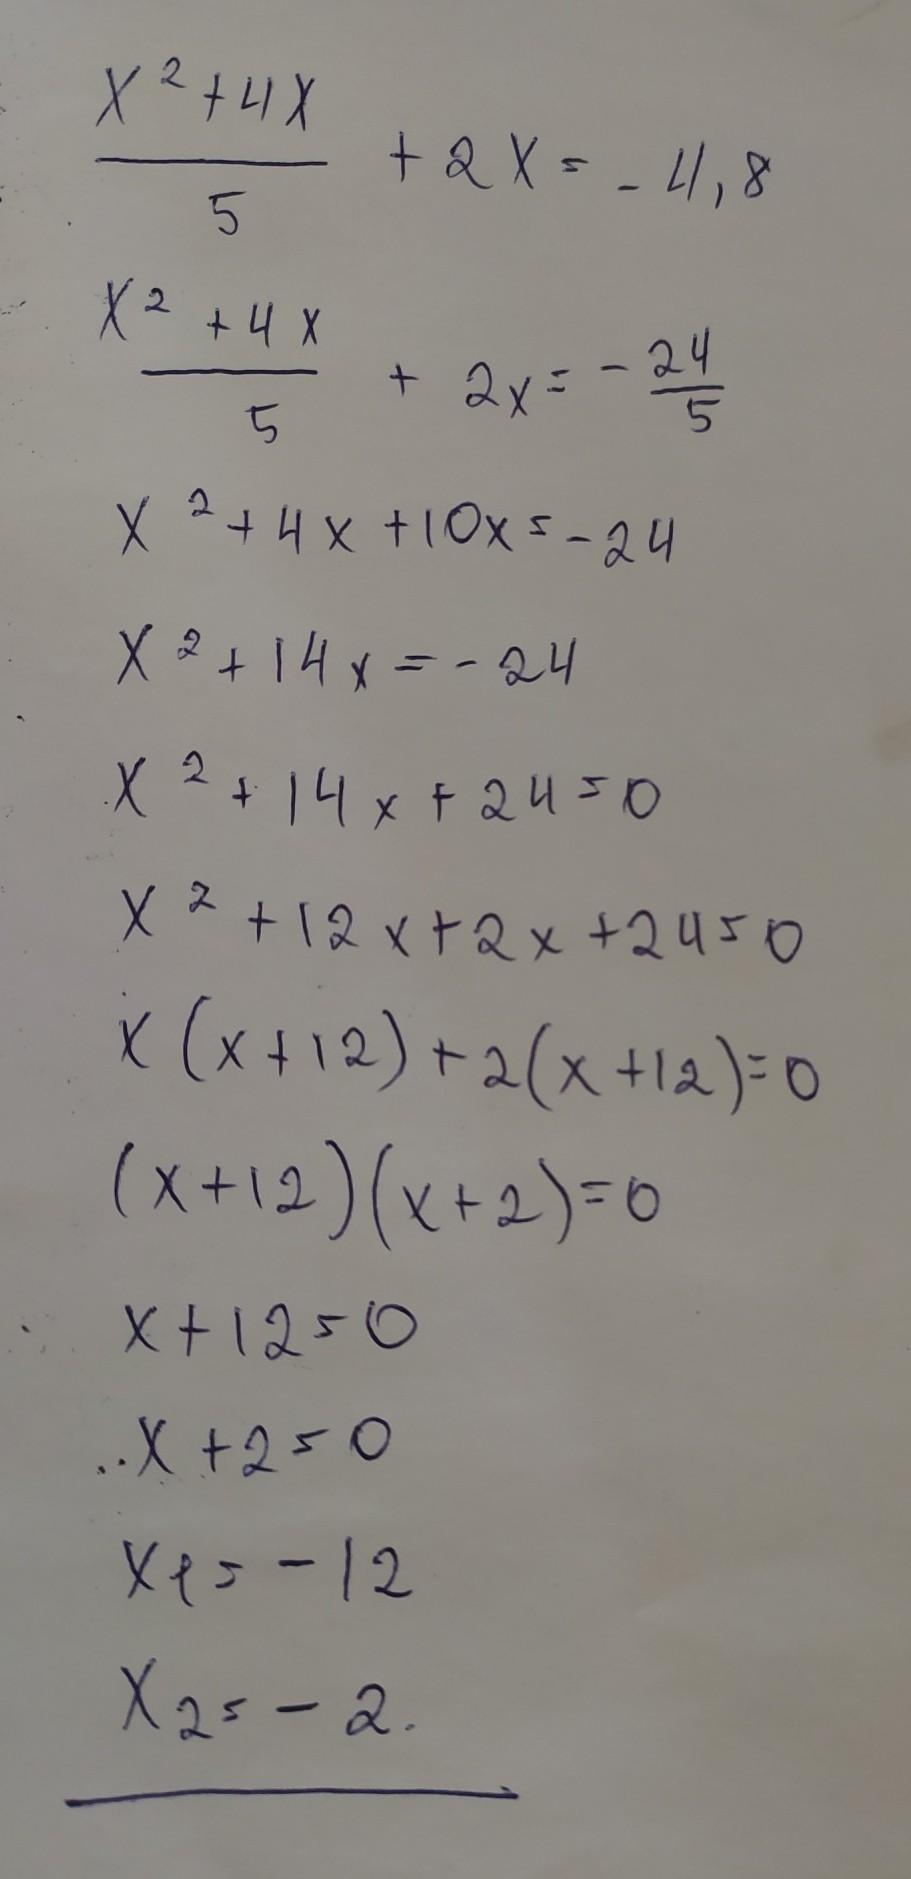 (x² + 4x)/5 + 2x = -4,8
(x² + 4x)/5 + 2x = -24/5
x² + 4x + 10x = -24
x² + 14x = -24
x² + 14x + 24 = 0
x² + 12x + 2x + 24 = 0
x(x+12) + 2(x+12) = 0
(x+12)(x+2) = 0
x + 12 = 0
x + 2 = 0
x₁ = -12
x₂ = -2.